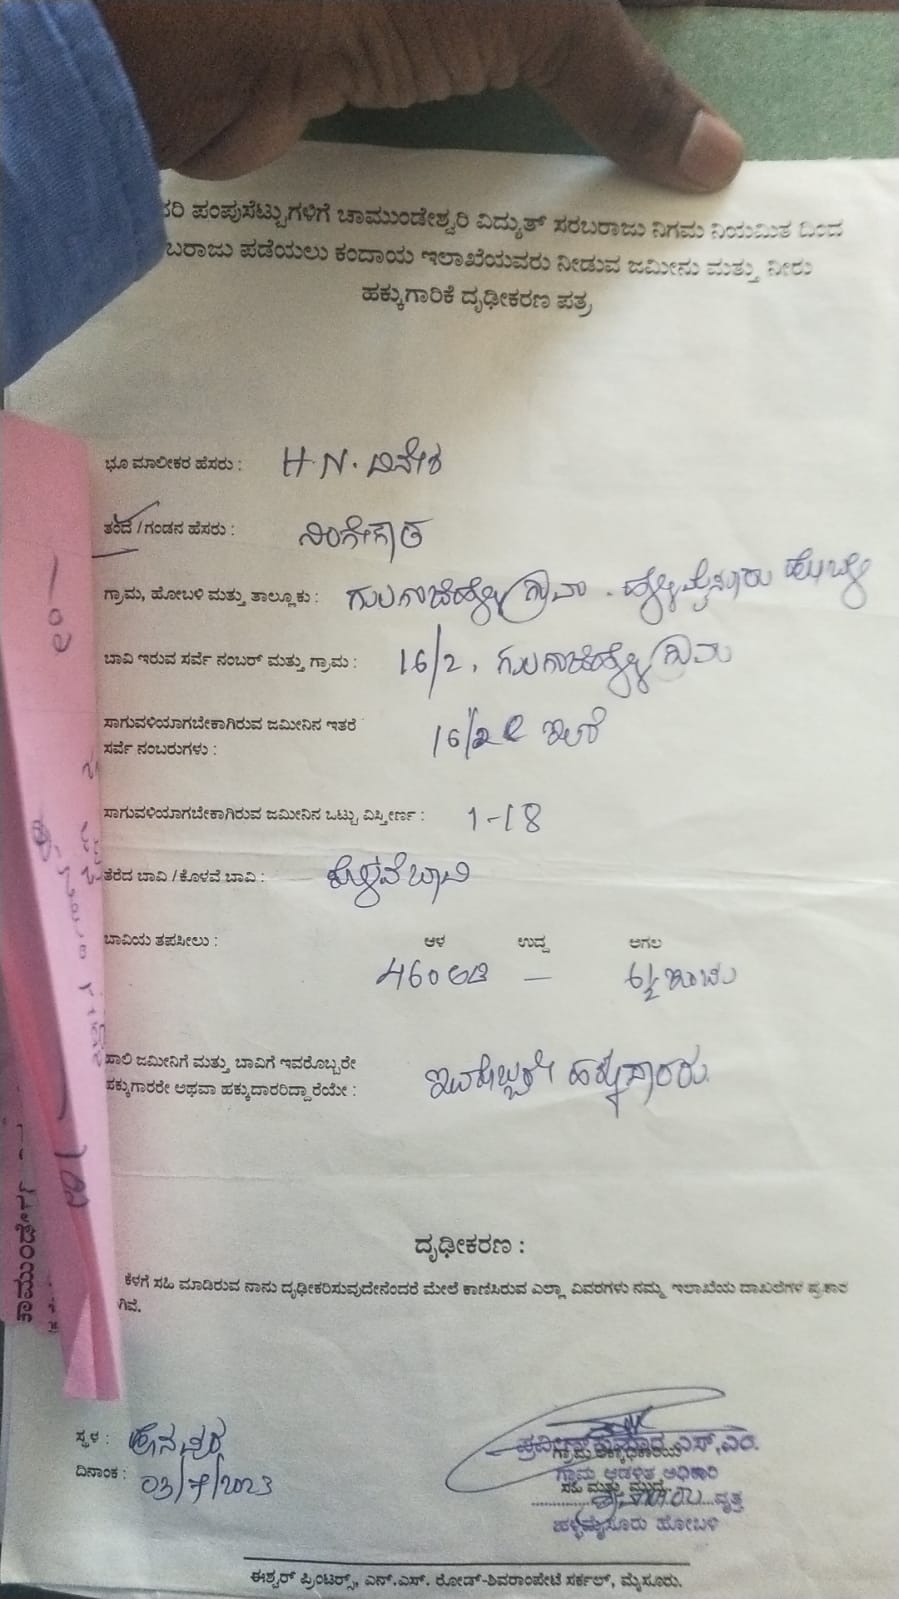 ಪಂಪುಸೆಟ್ಟುಗಳಿಗೆ ಚಾಮುಂಡೇಶ್ವರಿ ವಿದ್ಯುತ್ ಸರಬರಾಜು ನಿಗಮ ನಿಯಮಿತ ದಿಂದ
ಬರಾಜು ಪಡೆಯಲು ಕಂದಾಯ ಇಲಾಖೆಯವರು ನೀಡುವ ಜಮೀನು ಮತ್ತು ನೀರು
ಹಕ್ಕುಗಾರಿಕೆ ದೃಢೀಕರಣ ಪತ್ರ
ಭೂ ಮಾಲೀಕರ ಹೆಸರು : H.N. ದಿನೇಶ
ತಂದೆ / ಗಂಡನ ಹೆಸರು : ನಿಂಗೇಗೌಡ
ಗ್ರಾಮ, ಹೋಬಳಿ ಮತ್ತು ತಾಲ್ಲೂಕು : ಗ್ರಾಮ . ಹಳ್ಳಿಮೈಸೂರು ಹೋಬಳಿ
ಬಾವಿ ಇರುವ ಸರ್ವೆ ನಂಬರ್ ಮತ್ತು ಗ್ರಾಮ : 16/2, ಗ್ರಾಮ
ಸಾಗುವಳಿಯಾಗಬೇಕಾಗಿರುವ ಜಮೀನಿನ ಇತರೆ
ಸರ್ವೆ ನಂಬರುಗಳು :
ಸಾಗುವಳಿಯಾಗಬೇಕಾಗಿರುವ ಜಮೀನಿನ ಒಟ್ಟು ವಿಸ್ತೀರ್ಣ : 1-18
ತೆರೆದ ಬಾವಿ / ಕೊಳವೆ ಬಾವಿ : ಕೊಳವೆ ಬಾವಿ
ಬಾವಿಯ ತಪಸೀಲು : ಆಳ ಉದ್ದ ಅಗಲ
460 ಅಡಿ — 6½ ಇಂಚು
ಹಾಲಿ ಜಮೀನಿಗೆ ಮತ್ತು ಬಾವಿಗೆ ಇವರೊಬ್ಬರೇ
ಹಕ್ಕುಗಾರರೇ ಅಥವಾ ಹಕ್ಕುದಾರರಿದ್ದಾರೆಯೇ : ಇವರೊಬ್ಬರೇ ಹಕ್ಕುದಾರರು.
ದೃಢೀಕರಣ :
ಕೆಳಗೆ ಸಹಿ ಮಾಡಿರುವ ನಾನು ದೃಢೀಕರಿಸುವುದೇನೆಂದರೆ ಮೇಲೆ ಕಾಣಿಸಿರುವ ಎಲ್ಲಾ ವಿವರಗಳು ನಮ್ಮ ಇಲಾಖೆಯ ದಾಖಲೆಗಳ ಪ್ರಕಾರ
ಗಿವೆ.
ಸ್ಥಳ :
ದಿನಾಂಕ : 03/7/2023
ಪ್ರವೀಣ್ ಕುಮಾರ ಎಸ್.ಎಂ.
ಗ್ರಾಮ ಆಡಳಿತ ಅಧಿಕಾರಿ
ಸಹಿ ಮತ್ತು ಮುದ್ರೆ
ವೃತ್ತ
ಹಳ್ಳಿಮೈಸೂರು ಹೋಬಳಿ
ಈಶ್ವರ್ ಪ್ರಿಂಟರ್‍ಸ್, ಎನ್.ಎಸ್. ರೋಡ್-ಶಿವರಾಂಪೇಟೆ ಸರ್ಕಲ್, ಮೈಸೂರು.